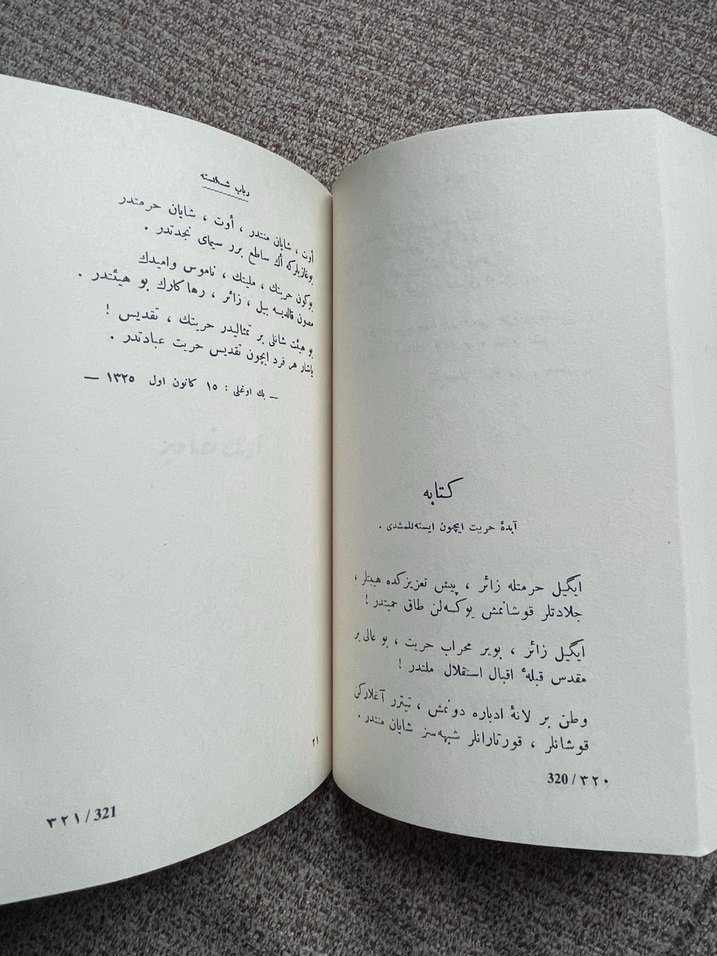 كتابه
آبدهٔ حريت ايچون ايسته‌نلمشدى .
ايگيل حرمتله زائر ، پيش تعزيزكده هيبتلر ،
جلادتلر قوشانمش يوكسه‌لن طاق حميتدر !
ايگيل زائر ، بوير محراب حريت ، بو عالى بر
مقدس قبلهٔ اقبال استقلال ملتدر !
وطن بر لانهٔ ادباره دونمش ، تيترر آغلاركن
قوشانلر ، قورتارانلر شبهه‌سز شايان منتدر .
320 / ٣٢٠
رباب شكسته
أوت ، شايان منتدر ، أوت ، شايان حرمتدر
بوغازيلركه أك ساطع برر سيماى نجدتدر .
بوكون حريتك ، مليتك ، ناموس واميدك
مصون قالديسه بيل ، زائر ، رهاكارك بو هيئتدر .
بو هيئت شانلى بر تمثاليدر حريتك ، تقديس !
ياشار هر فرد ايچون تقديس حريت عبادتدر .
— بك اوغلى : ١٥ كانون اول ١٣٢٥ —
٢١
٣٢١ / 321